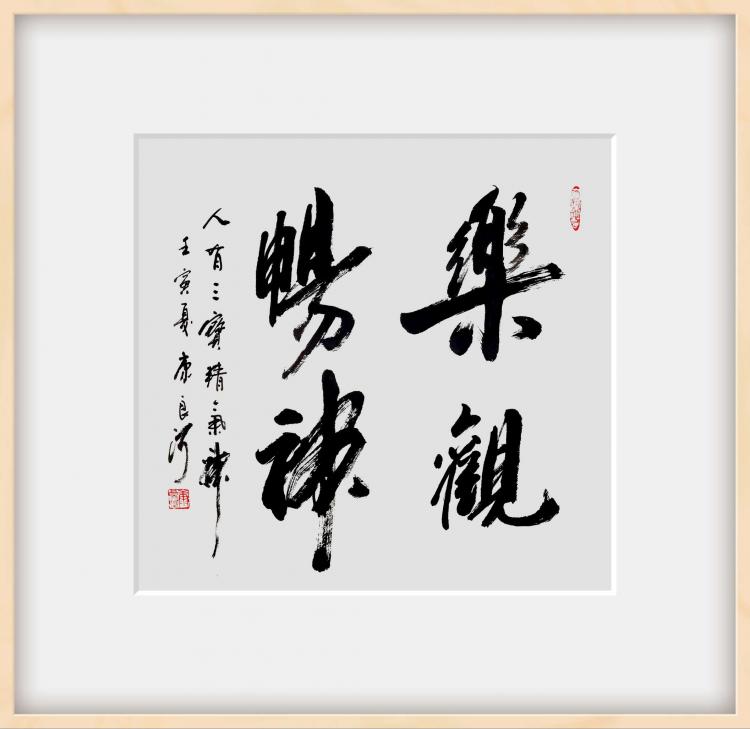 樂觀
暢神
人有三寶精氣神
壬寅夏康良河